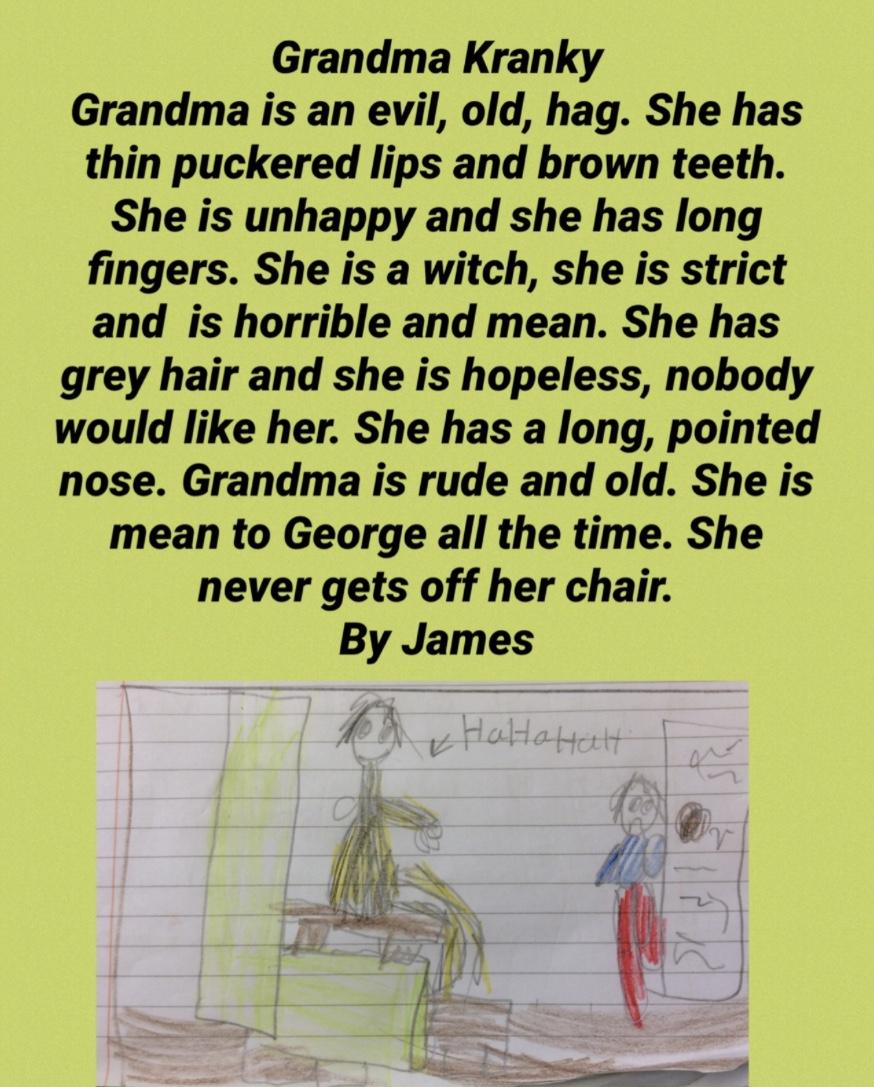 Grandma Kranky
Grandma is an evil, old, hag. She has
thin puckered lips and brown teeth.
She is unhappy and she has long
fingers. She is a witch, she is strict
and  is horrible and mean. She has
grey hair and she is hopeless, nobody
would like her. She has a long, pointed
nose. Grandma is rude and old. She is
mean to George all the time. She
never gets off her chair.
By James
HaHaHaH